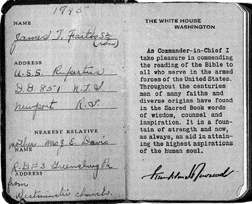 1945
NAME
James T.
ADDRESS
U.S.S. Rupertus
D.D. 851 N.T.S.
Newport R.I.
NEAREST RELATIVE
mother Mrs E. Davis
ADDRESS
R.D#3 Greensburg Pa
from
Westminster church.
THE WHITE HOUSE
WASHINGTON
As Commander-in-Chief I
take pleasure in commending
the reading of the Bible to
all who serve in the armed
forces of the United States.
Throughout the centuries
men of many faiths and
diverse origins have found
in the Sacred Book words
of wisdom, counsel and
inspiration. It is a foun-
tain of strength and now,
as always, an aid in attain-
ing the highest aspirations
of the human soul.
Franklin D Roosevelt